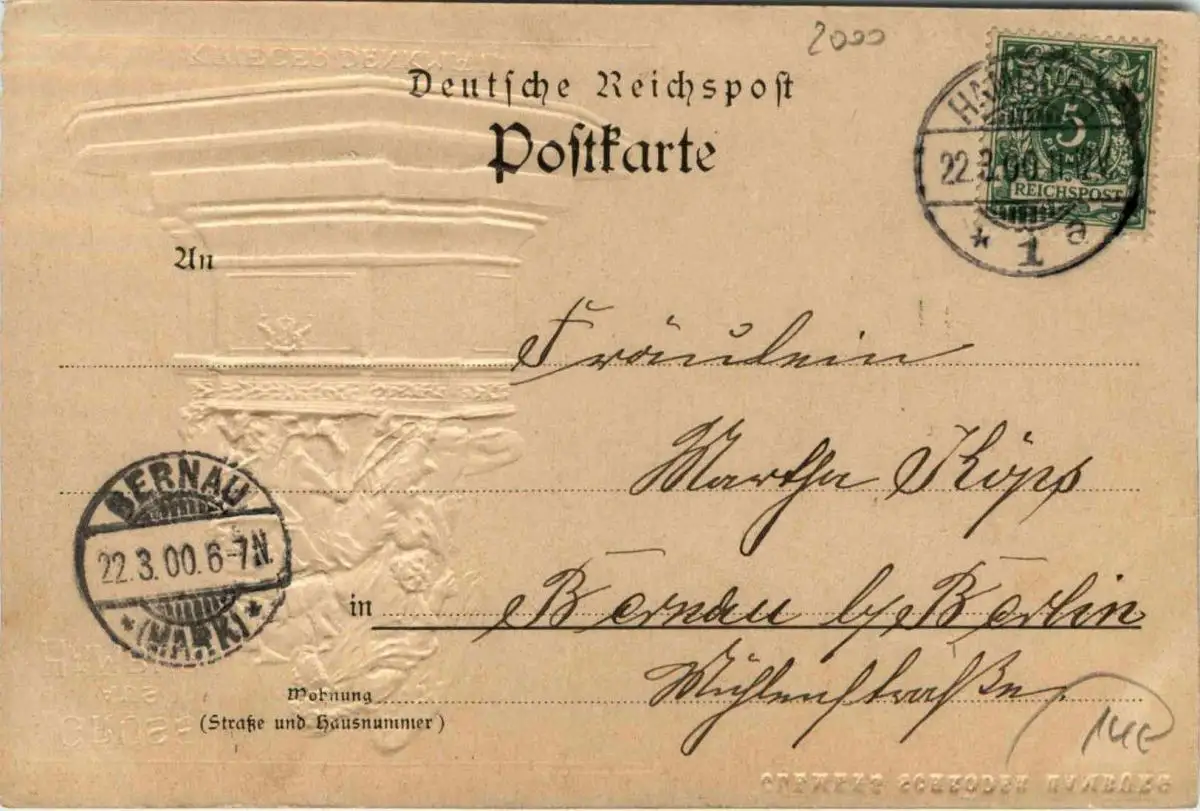 2000
Deutsche Reichspost
Postkarte
5
PFENNIG
REICHSPOST
22.3.00.11-12V.
* 1 a
An
Fräulein
Martha Köpp
BERNAU
22.3.00.6-7N.
* (MARK) *
in Bernau b/ Berlin
Mühlenstraße
Wohnung
(Straße und Hausnummer)
KRIEGER DENKMAL